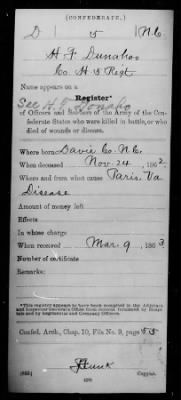 (CONFEDERATE.)
D 5 N.C.
H. F. Dunahoo
Co. H. 5 Regt
Name appears on a
Register*
See H. F. Donaho
of Officers and Soldiers of the Army of the Con-
federate States who were killed in battle, or who
died of wounds or disease.
Where born Davie Co. N.C.
When deceased Nov. 24, 1862.
Where and from what cause Paris. Va
Disease
Amount of money left
Effects
In whose charge
When received Mar. 9, 1863
Number of certificate
Remarks:
*This register appears to have been compiled in the Adjutant
and Inspector General's Office from
by Regimental and Company Officers.
Confed. Arch., Chap. 10, File No. 9, page 55
Copyist.